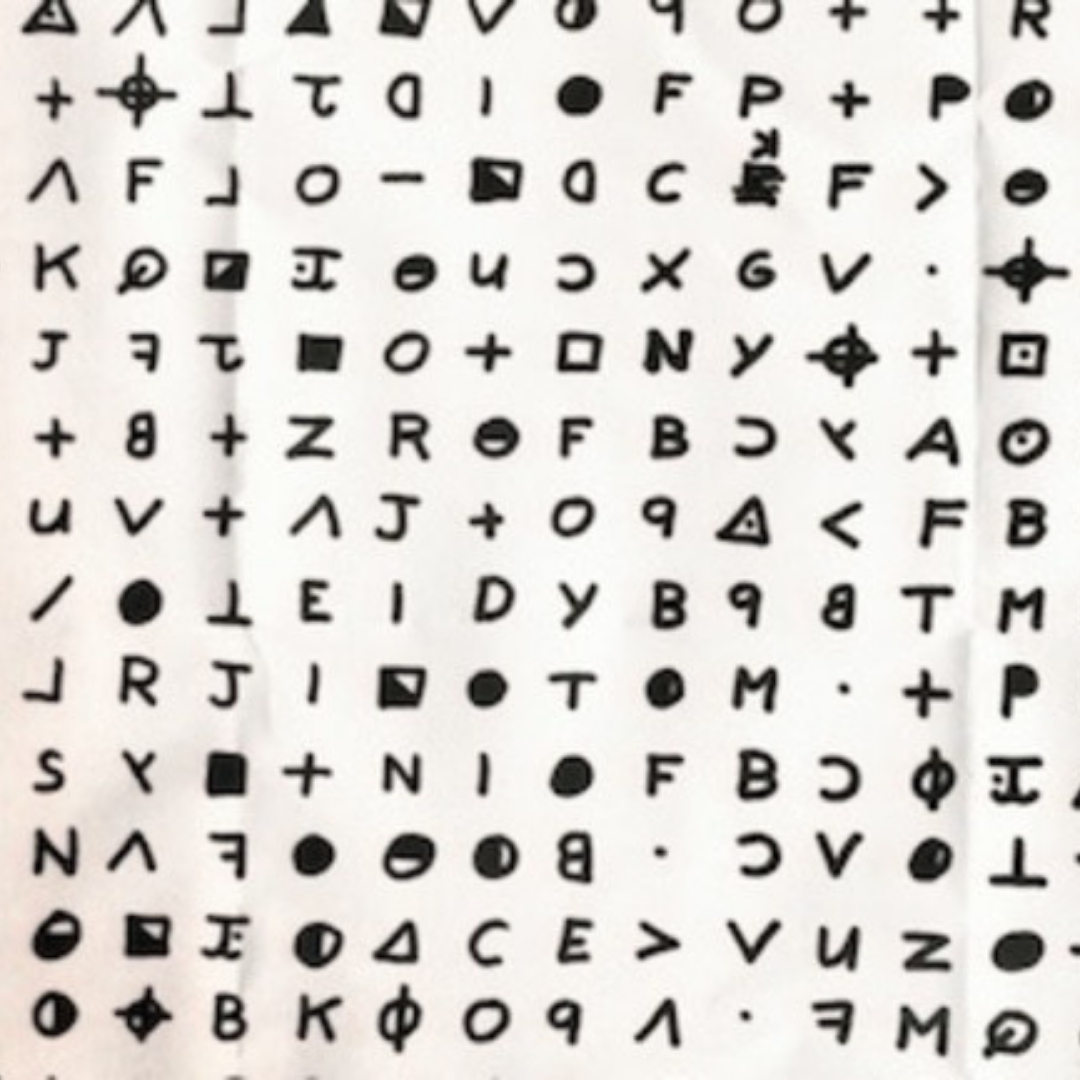 ◬ Λ ⅃ ▲ ◪ V ◑ ꟼ O + + R
+ ⌖ ⊥ τ ᗡ I ● F P + P ◑
Λ F ⅃ O − ◪ ᗡ C ꓘ F > ⊖
K Ø ◪ ·I ⊖ U Ɔ X G V · ⌖
J ꟻ τ ■ O + □ N Y ⌖ + ⊡
+ 8 + Z R ⊖ F B Ɔ ⅄ A ⊙
U V + Λ J + O 9 ◬ < F B
/ ● ⊥ E I D Y B 9 8 T M
⅃ R J I ◪ ● T ● M · + P
S ⅄ ■ + N I ● F B Ɔ Φ ·I
N Λ ꟻ ● ⊖ ◑ 8 · Ɔ V ● ⊥
⊖ ◪ ·I ◐ Δ C E > V U Z ●
◑ ⌖ B K Φ O 9 Λ · ꟻ M Ø